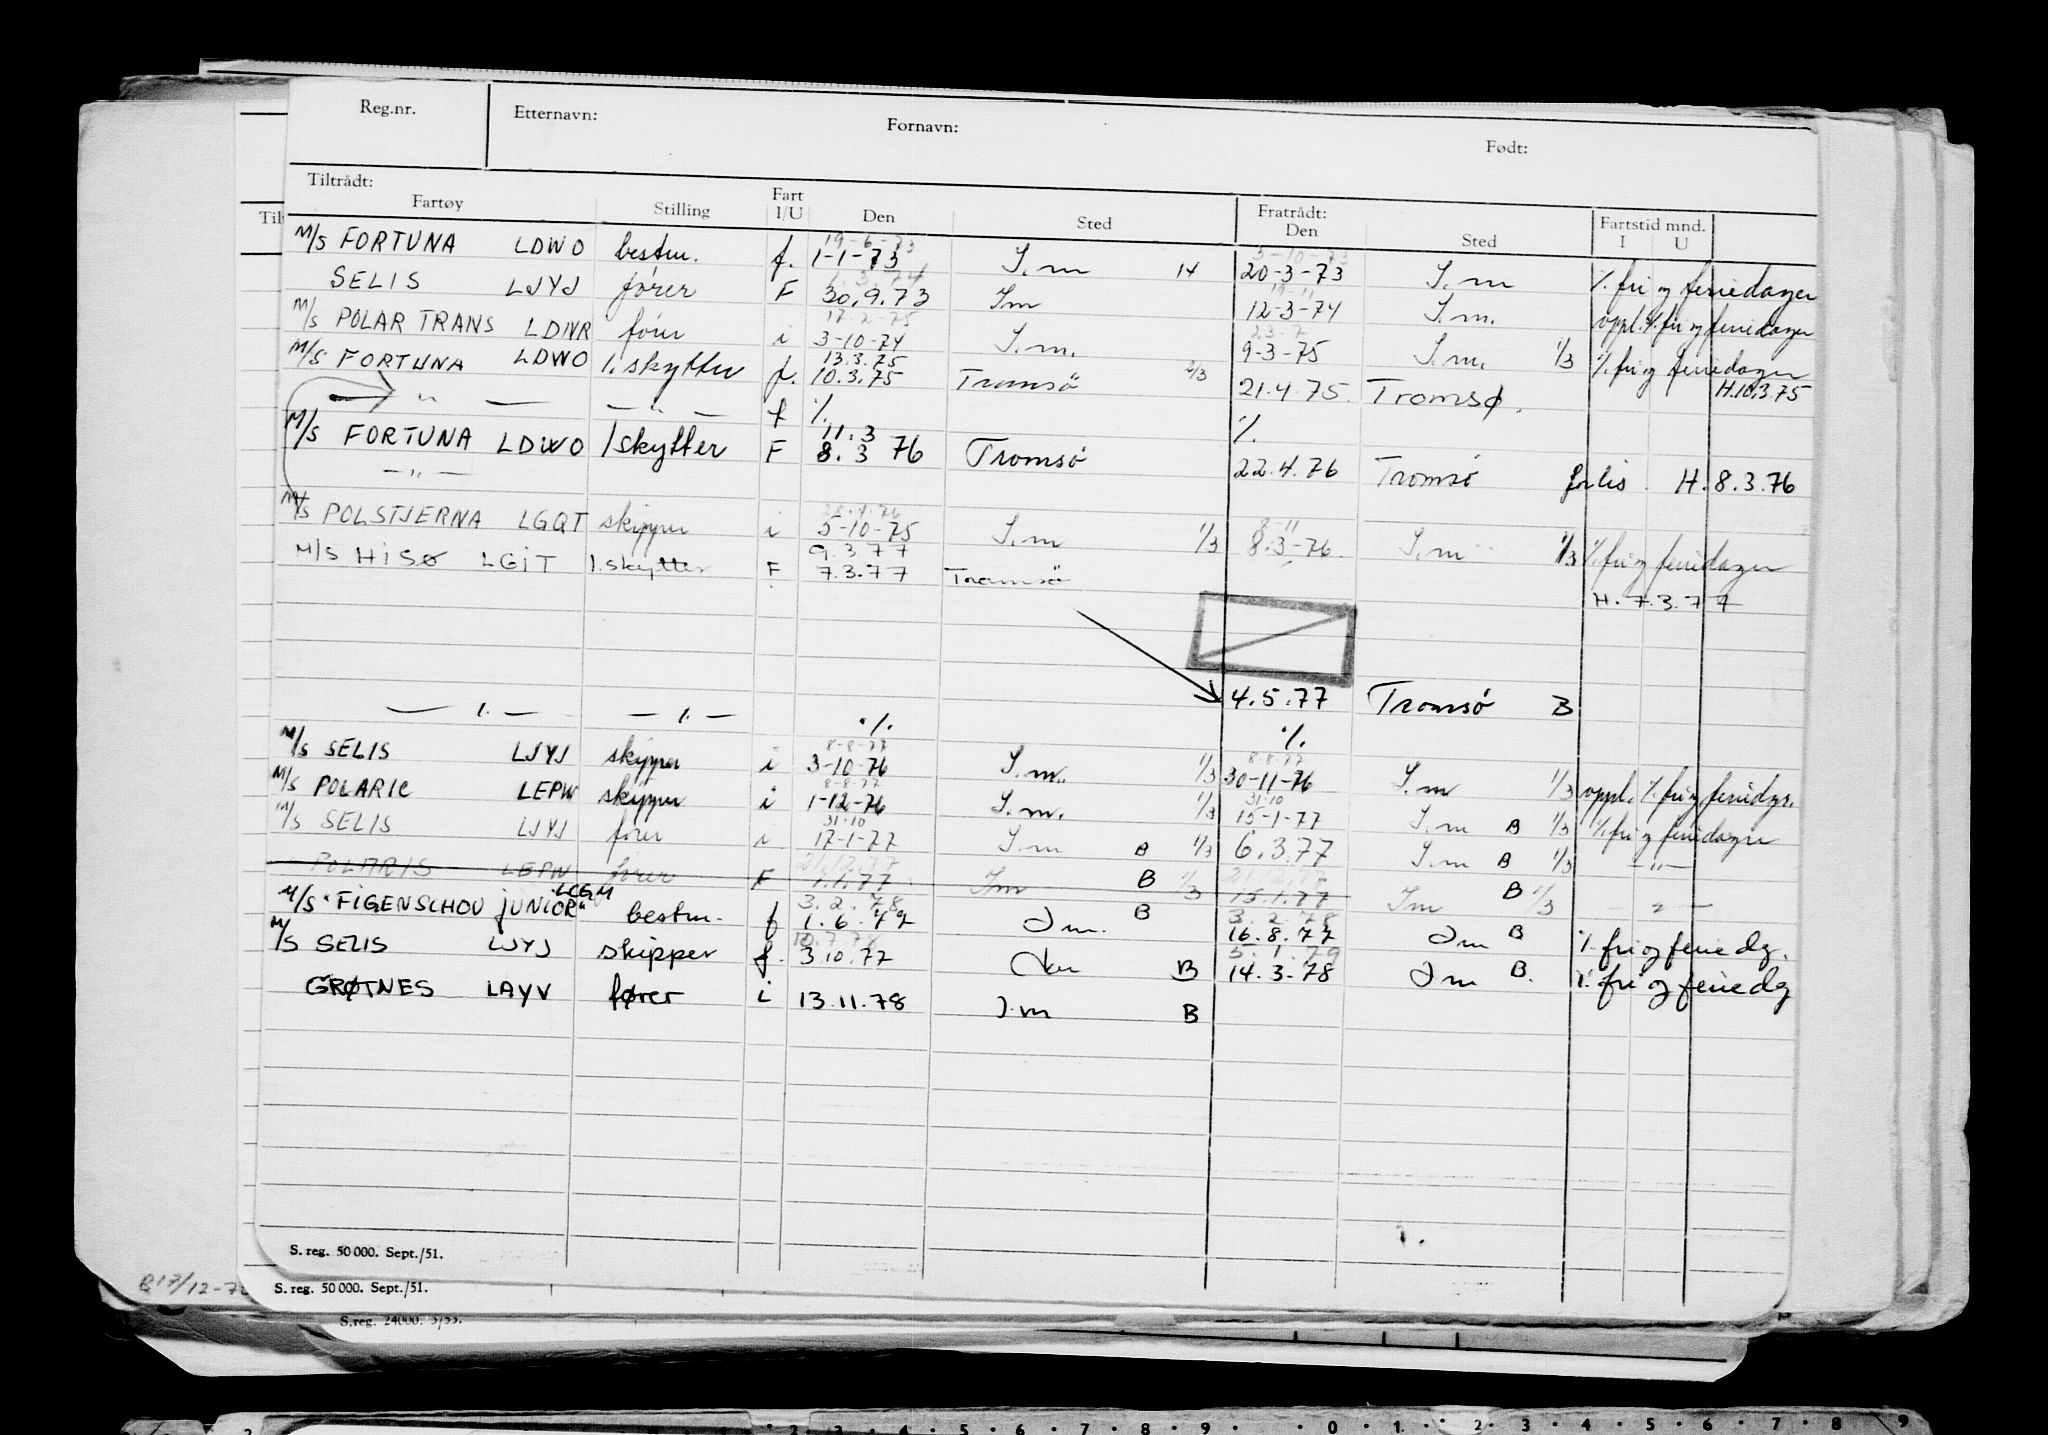 Reg.nr. Etternavn: Fornavn: Født:
Tiltrådt: Fratrådt:
Fartøy Stilling Fart I/U Den Sted Den Sted Fartstid mnd. I U
19-6-73 5-10-73
M/S FORTUNA LDWO bestm. f. 1-1-73 I.m 14 20-3-73 I.m % fri og feriedager
SELIS LJYJ fører F 30.9.73 Im 12-3-74 I.m. oppl. % fri og feriedager
17-2-75 23.7
M/S POLAR TRANS LDNR fører i 3-10-74 I.m. 9-3-75 I.m. 1/3 % fri og feriedager
13.3.75
M/S FORTUNA LDWO 1. skytter f. 10.3.75 Tromsö 2/3 21.4.75. Tromsø. H.10.3.75
— " — — " — f % %
11.3
M/S FORTUNA LDWO 1 skytter F 8.3 76 Tromsö 22.4.76 Tromsö forlis. H. 8.3.76
— " —
28.4.76 8-11
M/S POLSTJERNA LGQT skipper i 5-10-75 I.m 1/3 8.3-76. I.m 1/3 % fri og feriedager
9.3.77
M/S HISØ LGIT 1. skytter F 7.3.77 Tromsö
H. 7.3.77
4.5.77 Tromsö B
— 1. — — 1. — % %
8-8-77 8-8-77
M/S SELIS LJYJ skipper i 3-10-76 I.m. 1/3 30-11-76 I.m 1/3 oppl. % fri og feriedgr.
8-8-77 31-10
M/S POLARIC LEPW skipper i 1-12-76 I.m. 1/3 15-1-77 I.m B 1/3 % fri og feriedager
31-10
M/S SELIS LJYJ fører i 17-1-77 I.m B 1/3 6.3.77 I.m B 1/3 — " —
21.12.77
POLARIS LEPW fører F 1.1.77 Im B 1/3 15.1.77 Im B 1/3 — " —
LCGM 3.2.78 3.2.78
M/S "FIGENSCHOU JUNIOR" bestm. f 1.6.77 I m. B 16.8.77 I m B % fri og ferie dg.
10.7.78 5.1.79
M/S SELIS LJYJ skipper f. 3.10.77 B 14.3.78 I m B. % fri og ferie dg
GRØTNES LAYV fører i 13.11.78 I.m B
S. reg. 50 000. Sept./51.
B17/12-7
S. reg. 50 000. Sept./51.
S.reg. 24000. 5/53.
2 3 4 5 6 7 8 9 0 1 2 3 4 5 6 7 8 9